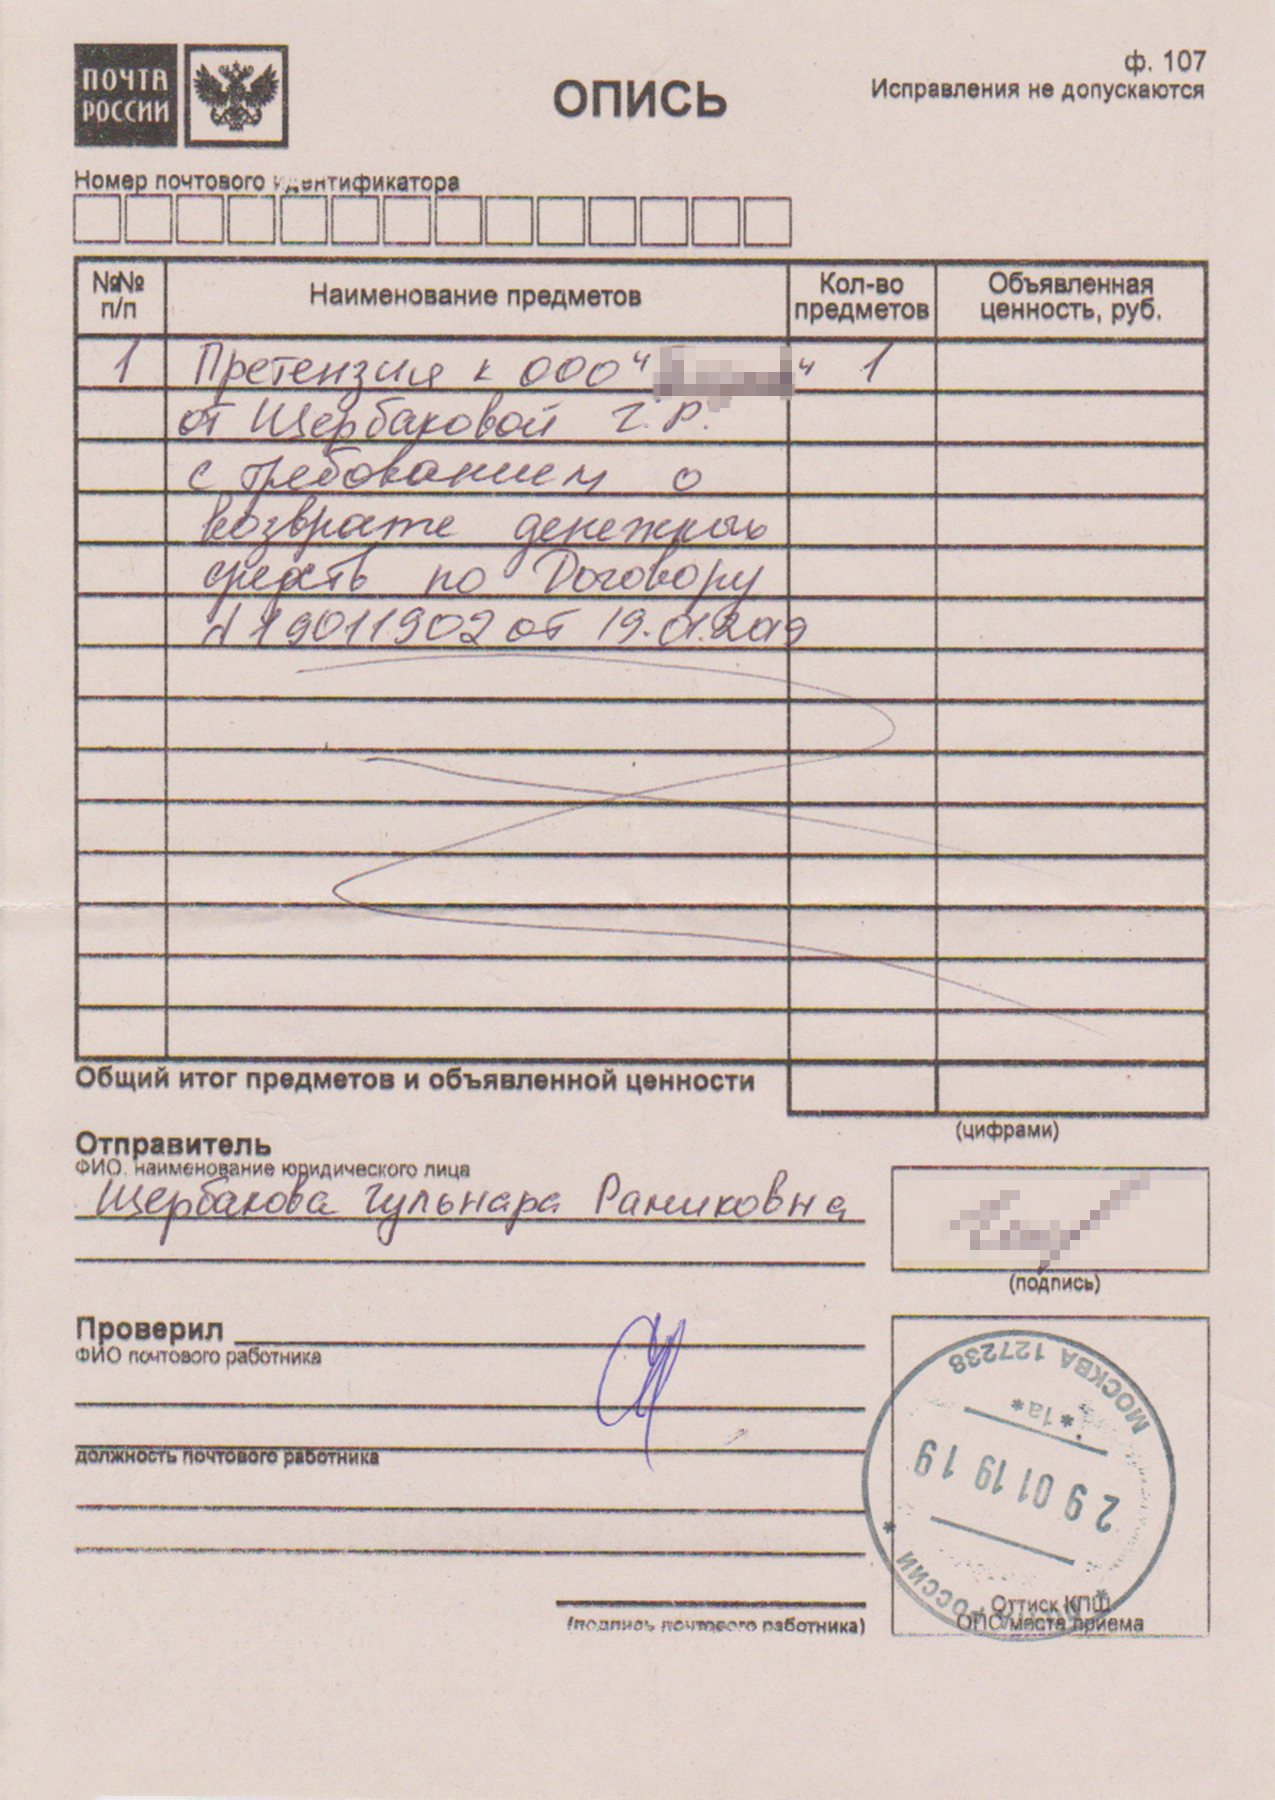 ПОЧТА
РОССИИ
ОПИСЬ
ф. 107
Исправления не допускаются
Номер почтового идентификатора
№№
п/п
Наименование предметов
Кол-во
предметов
Объявленная
ценность, руб.
1 Претензия к ООО " " 1
от Щербаковой Г.Р.
с требованием о
возврате денежных
средств по Договору
N 19011902 от 19.01.2019
Общий итог предметов и объявленной ценности
(цифрами)
Отправитель
ФИО, наименование юридического лица
Щербакова Гульнара Рамиковна
(подпись)
Проверил
ФИО почтового работника
должность почтового работника
(подпись почтового работника)
МОСКВА 127238
*1а*
29 01 19 19
РОССИИ
Оттиск КПШ
ОПС места приема